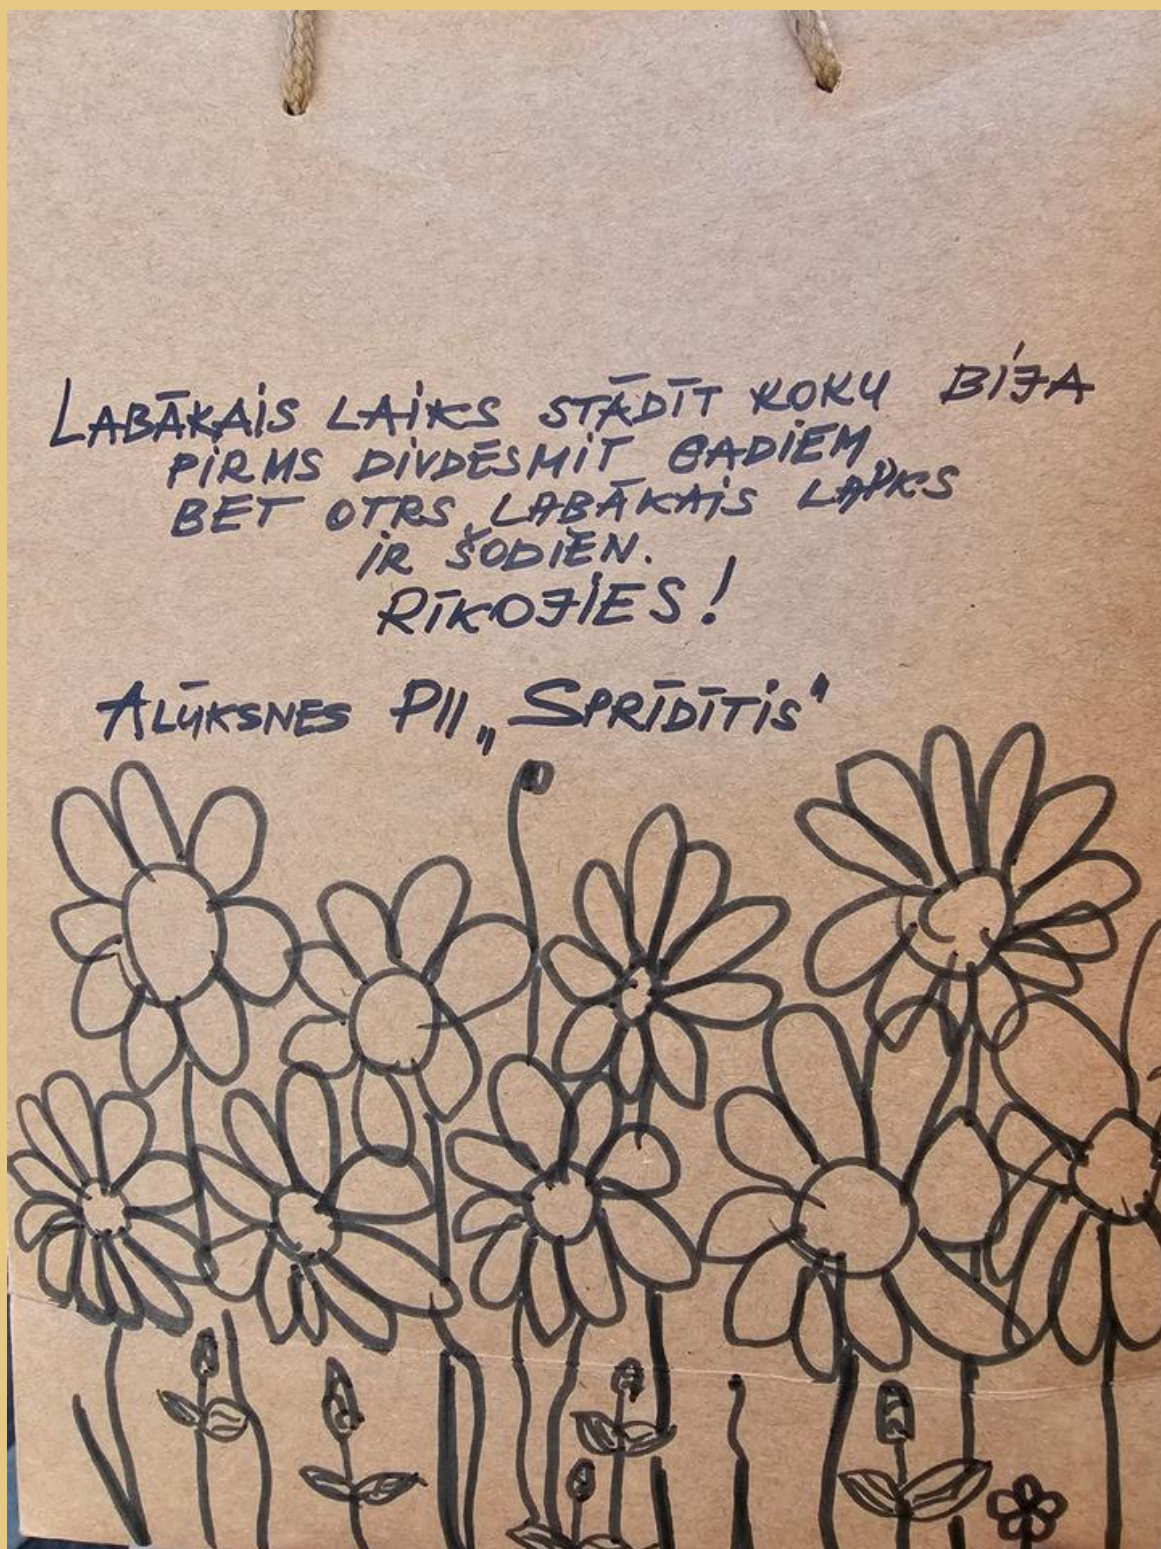 LABĀKAIS LAIKS STĀDĪT KOKU BIJA
PIRMS DIVDESMIT GADIEM
BET OTRS LABĀKAIS LAIKS
IR ŠODIEN.
RĪKOJIES!
ALŪKSNES PII „SPRĪDĪTIS"